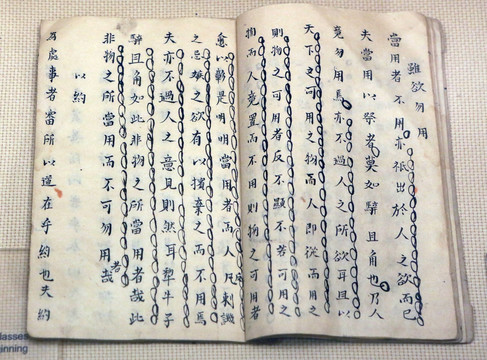 雖欲勿用
當用者不用亦祇出於人之欲而已
夫當用以祭者莫如騂且角也乃人
竟勿用焉亦不過人之所欲耳且以
天下之可用之物而人即從而用之
則物之可用者反不顯不若可用之
物而人竟置而不用則物之可用者
愈以彰是明明當用者而人凡來譏
之忌嫉之欲有以擯棄之而不用焉
夫亦不過人之意見則然耳犁牛子
騂且角如此非物之所當用者哉此
非物之所當用而不可勿用者哉
以約
為處事者審所以道在乎約也夫約
lasses
inning